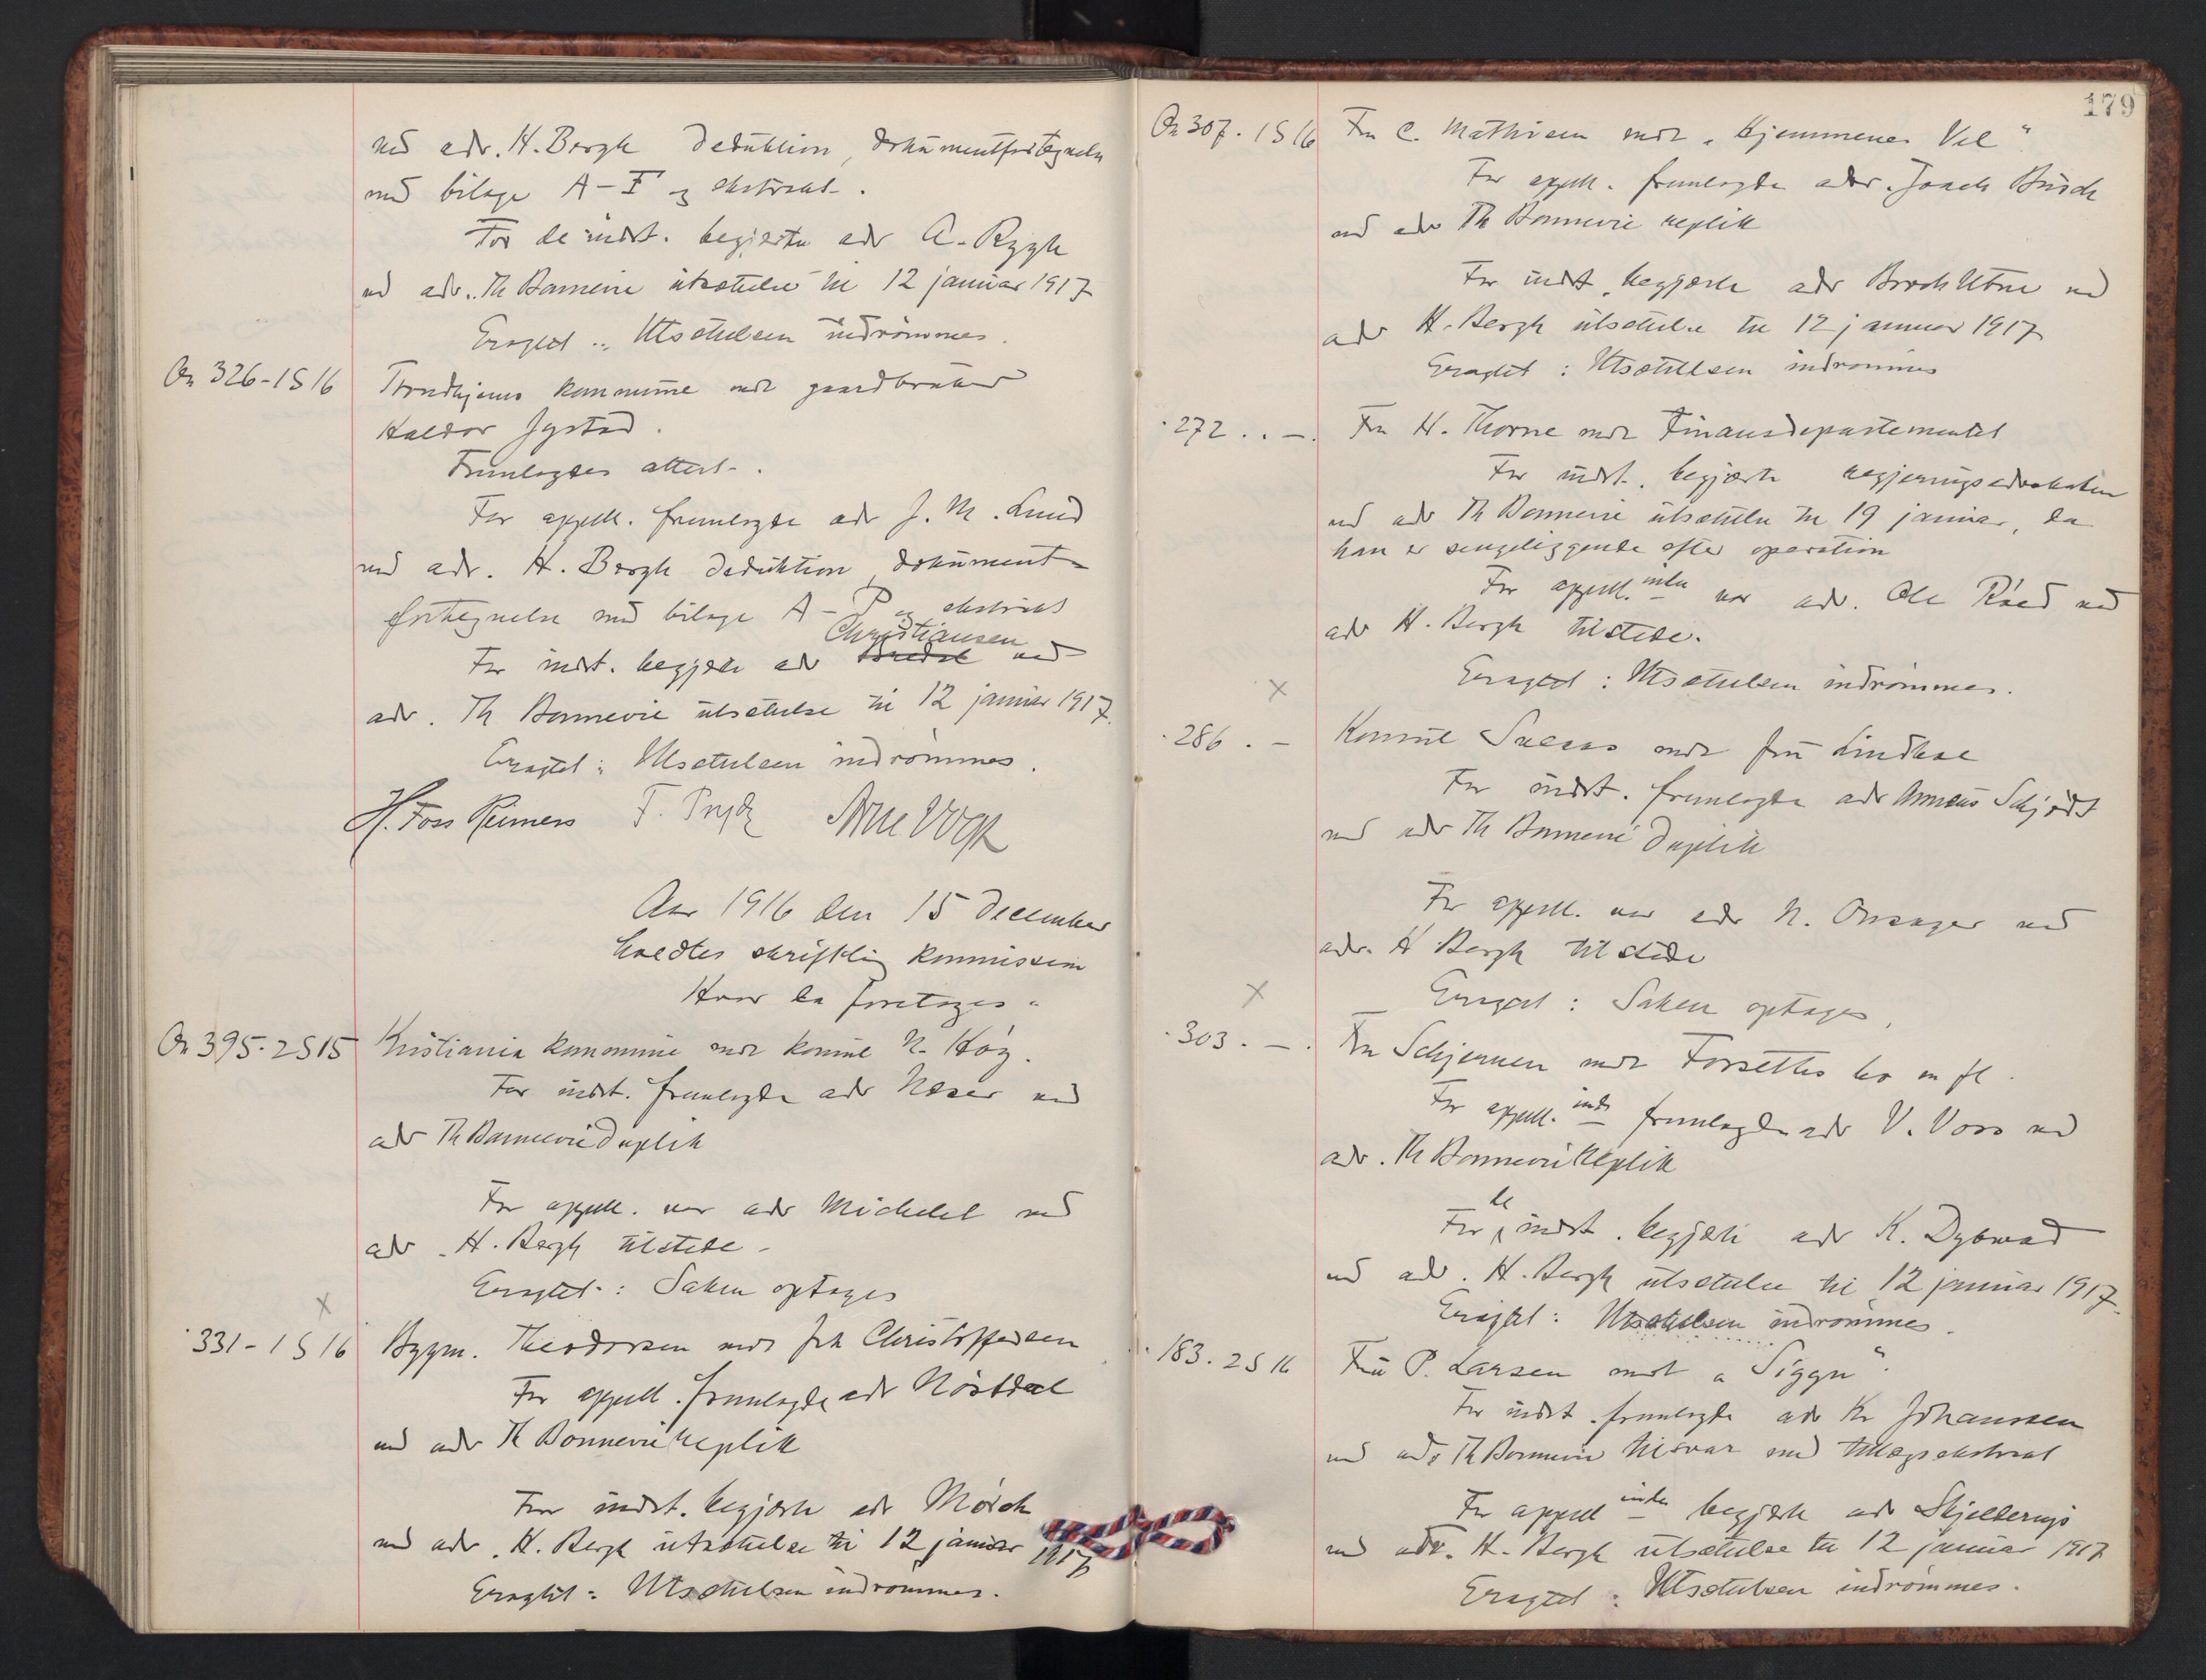 ved adv. H. Bergh deduktion, dokumentfortegnelse
med bilage A-F og ekstrakt.
For de indst. begjærte adv A. Rygh
ved adv. Th Bonnevie utsættelse til 12 januar 1917
Eragtet: Utsættelsen indrømmes.
On 326-1S16
Trondhjems kommune mot gaardbruker
Haldor Jystad.
Fremlagdes attest.
For appell. fremlagde adv J. M. Lund
ved adv. H. Bergh deduktion, dokument-
fortegnelse med bilage A-P og ekstrakt
Christiansen
For indst. begjærte adv ved
adv. Th Bonnevie utsættelse til 12 januar 1917.
Eragtet: Utsættelsen indrømmes.
H. Foss Reimers F. Prydz Arne Vogt
Aar 1916 den 15 december
holdtes skriftlig kommission
Hvor da foretoges:
On 395-2S15
Kristiania kommune mot komm N. Høy.
For indst. fremlagde adv Næser ved
adv Th Bonnevie duplik
For appell. var adv Michelet ved
adv. H. Bergh tilstede.
Eragtet: Saken optages
x
331-1S16
Bygm. Theodorsen mot Joh Christoffersen
For appell. fremlagde adv Nørstdal
ved adv Th Bonnevie replik
For indst. begjærte adv Mørch
ved adv. H. Bergh utsættelse til 12 januar 1917
Eragtet: Utsættelsen indrømmes.
179
On 307. 1S16
Fru C. Mathisen mot "Hjemmenes Vel"
For appell. fremlagde adv. Joach Busch
ved adv Th Bonnevie replik
For indst. begjærte adv Broch Utne ved
adv H. Bergh utsættelse til 12 januar 1917
Eragtet: Utsættelsen indrømmes
272. . —.
Fru H. Thorne mot Finansdepartementet
For indst. begjærte regjeringsadvokaten
ved adv Th Bonnevie utsættelse til 19 januar, da
han er sengeliggende efter operation
For appell. inden var adv. Ole Røed ved
adv H. Bergh tilstede.
Eragtet: Utsættelsen indrømmes.
x
286. —
Konsul mot fru Lindboe
For indst. fremlagde adv Annæus Schjødt
ved adv Th Bonnevie duplik
For appell. var adv N. Onsager ved
adv. H Bergh tilstede
Eragtet: Saken optages,
x
303. —.
Fru Schjernen mot Forsetths bo m fl.
For appell. inden fremlagde adv V. Voss ved
adv. Th Bonnevie replik
de
For indst. begjærte adv K. Dybwad
ved adv. H. Bergh utsættelse til 12 januar 1917.
Eragtet: Utsættelsen indrømmes.
183. 2S16
Fru P. Larsen mot "Sigyn".
For indst. fremlagde adv Kr Johanssen
ved adv Th Bonnevie tilsvar med tillægsekstrakt
For appell inden begjærte adv Skjelderup
ved adv. H. Bergh utsættelse til 12 januar 1917
Eragtet: Utsættelsen indrømmes.